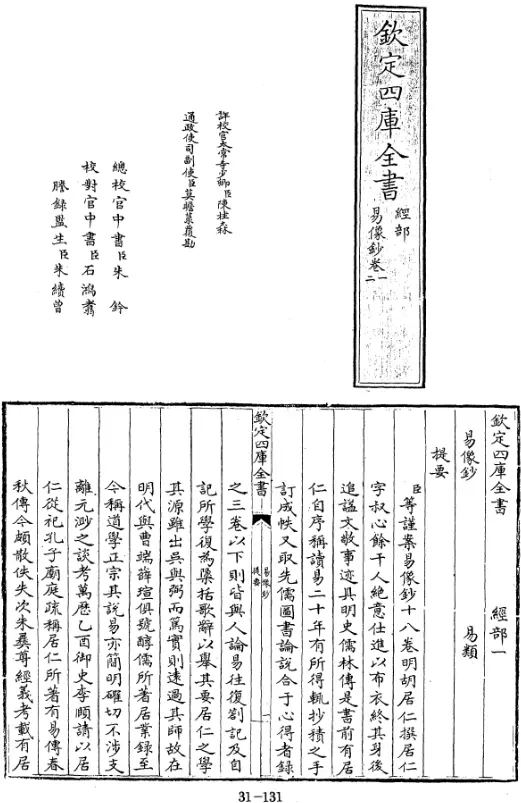 欽定四庫全書
經部
易像鈔卷一
二
詳校官太常寺少卿臣陳桂森
通政使司副使臣莫瞻菉覆勘
總校官中書臣朱鈐
校對官中書臣石鴻翥
謄錄監生臣朱續曾
欽定四庫全書 經部一
易像鈔 易類
提要
臣等謹案易像鈔十八卷明胡居仁撰居仁
字叔心餘干人絶意仕進以布衣終其身後
追謚文敬事迹具明史儒林傳是書前有居
仁自序稱讀易二十年有所得輒抄積之手
訂成帙又取先儒圖書論説合于心得者錄
欽定四庫全書
易像鈔
提要
之三卷以下則皆與人論易往復劄記及自
記所學復為櫽括歌辭以舉其要居仁之學
其源雖出吳與弼而篤實則遠過其師故在
明代與曹端薛瑄俱號醇儒所著居業錄至
今稱道學正宗其說易亦簡明確切不涉支
離元渺之談考萬厯乙酉御史李頤請以居
仁從祀孔子廟庭疏稱居仁所著有易傳春
秋傳今頗散佚失次朱彝尊經義考載有居
31-131